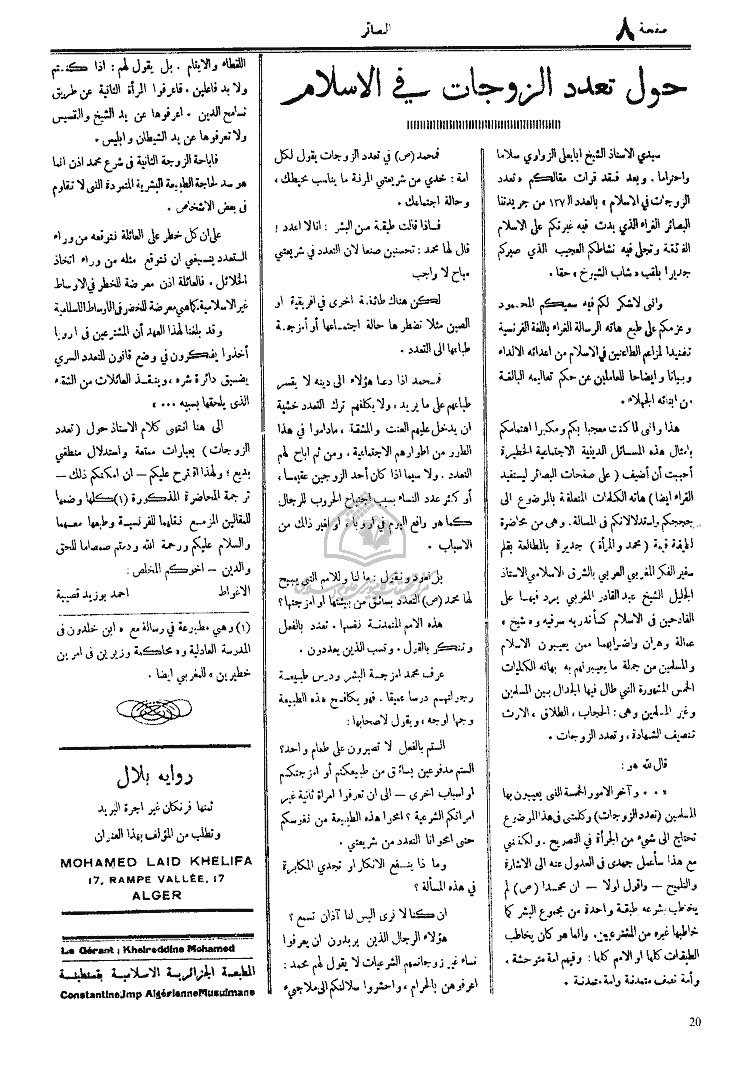 صفحة ٨
البصائر
حول تعدد الزوجات في الاسلام
سيدي الاستاذ الشيخ ابايعلى الزواوي سلاما
واحتراما . وبعد فقد قرات مقالكم « تعدد
الزوجات في الاسلام » بالعدد الـ١٣٧ من جريدتنا
البصائر الغراء الذي بدت فيه غيرتكم على الاسلام
وتجلى فيه نشاطكم العجيب الذي صيركم
جديرا بلقب « شاب الشيوخ » حقا .
وانى لاشكر لكم فيه سعيكم المحمود
وعزمكم على طبع هاته الرسالة الغراء باللغة الفرنسية
تفنيدا لمزاعم الطاعنين في الاسلام من اعدائه الالداء
وبيانا وايضاحا للعاملين عن حكم تعاليمه البالغة
من ابنائه الجهلاء .
هذا وانى لما كنت معجبا بكم ومكبرا اهتمامكم
بامثال هذه المسائل الدينية الاجتماعية الخطيرة
أحببت أن أضيف ( على صفحات البصائر ليستفيد
القراء ايضا ) هاته الكلمات المتعلقة بالموضوع الى
حججكم واستدلالاتكم في المسالة . وهى من محاضرة
لطيفة قيمة ( محمد والمرأة ) جديرة بالمطالعة بقلم
سفير الفكر المغربي العربي بالشرق الاسلامي الاستاذ
الجليل الشيخ عبد القادر المغربي يرد فيها على
القادحين فى الاسلام كـ« أندريه سرفيه » و« شيخ »
عمالة وهران واضرابهما ممن يعيبون الاسلام
والمسلمين من جملة ما يعيبونهم به بهاته الكليات
الخمس المشهورة التي طال فيها الجدال بين المسلمين
وغير المسلمين وهى : الحجاب ، الطلاق ، الارث
تنصيف الشهادة ، وتعدد الزوجات .
قال لله هو :
« ٠٠ وآخر الامور الخمسة التى يعيبون بها
المسلمين ( تعدد الزوجات ) وكلمتى في هذا الموضوع
تحتاج الى شيء من الجرأة في التصريح . ولكننى
مع هذا سأعمل جهدى في العدول عنه الى الاشارة
والتلميح — واقول اولا — ان محمدا (ص) لم
يخاطب بشرعه طبقة واحدة من مجموع البشر كما
خاطبها غيره من المشترعين . وانما هو كان يخاطب
الطبقات كلها او الامم كلها : وفيهم امة متوحشة .
وأمة نصف متمدنة وامة متمدنة .
فمحمد (ص) في تعدد الزوجات يقول لكل
امة : خدي من شريعتي المرنة ما يناسب محيطك ،
وحالة اجتماعك .
فاذا قالت طبقة من البشر : انا لا اعدد !
قال لها محمد : تحسنين صنعا لان التعدد في شريعتي
مباح لا واجب
لكن هناك طائفة اخرى في افريقية او
الصين مثلا تضطرها حالة اجتماعها أو أمزجة
طباعها الى التعدد .
فمحمد اذا دعا هؤلاء الى دينه لا يقسر
طباعهم على ما يريد ، ولا يكلفهم ترك التعدد خشية
ان يدخل عليهم العنت والمشقة ، ماداموا في هذا
الطور من اطوارهم الاجتماعية . ومن ثم اباح لهم
التعدد . ولا سيما اذا كان أحد الزوجين عقيما ،
أو كثر عدد النساء بسبب اجتياح الحروب للرجال
كما هو واقع اليوم في اوربا ، او لغير ذلك من
الاسباب .
بل نعود ونقول : ما لنا وللامم التي يبيح
لها محمد (ص) التعدد بسائق من بيئتها او امزجتها ؟
هذه الامم المتمدنة نفسها . تعدد بالفعل
وتنكر بالقول . وتسب الذين يعددون .
عرف محمد امزجة البشر ودرس طبيعة
رجولتهم درسا عميقا . فهو يكافح هذه الطبيعة
وجها لوجه ، ويقول لاصحابها :
الستم بالفعل لا تصبرون على طعام واحد ؟
الستم مدفوعين بسائق من طبيعتكم أو امزجتكم
او اسباب اخرى — الى ان تعرفوا امراة ثانية غير
امرأتكم الشرعية ؟ امحوا هذه الطبيعة من نفوسكم
حتى امحو انا التعدد من شريعتي .
وما ذا ينفع الانكار او تجدي المكابرة
في هذه المسألة ؟
ان كنا لا نرى اليس لنا آذان تسمع ؟
هؤلاء الرجال الذين يريدون ان يعرفوا
نساء غير زوجاتهم الشرعيات لا يقول لهم محمد :
اعرفوهن بالحرام ، واحشروا سلالتكم الى ملاجىء
اللقطاء والايتام . بل يقول لهم : اذا كنتم
ولا بد فاعلين . فاعرفوا المرأة الثانية عن طريق
تسامح الدين . اعرفوها عن يد الشيخ والقسيس
ولا تعرفوها عن يد الشيطان وابليس .
فاباحة الزوجة الثانية في شرع محمد اذن انما
هو سد لحاجة الطبيعة البشرية المتمردة التى لا تقاوم
في بعض الاشخاص .
على ان كل خطر على العائلة نتوقعه من وراء
التعدد ينبغي ان نتوقع مثله من وراء اتخاذ
الخلائل . فالعائلة اذن معرضة للخطر في الاوساط
غير الاسلامية كما هي معرضة للخطر في الاوساط الاسلامية
وقد بلغنا لهذا العهد أن المشترعين فى اروبا
أخذوا يفكرون في وضع قانون للتعدد السري
يضيق دائرة شره ، وينقذ العائلات من الشقاء
الذى يلحقها بسببه ٠٠٠ »
الى هنا انتهى كلام الاستاذ حول ( تعدد
الزوجات ) بعبارات ممتعة واستدلال منطقي
بديع ؛ ولهذا اقترح عليكم — ان امكنكم ذلك —
ترجمة المحاضرة المذكورة (١) كلها وضمها
للمقالين المزمع نقلهما للفرنسية وطبعها معهما
والسلام عليكم ورحمة الله ودمتم صمصاما للحق
والدين — اخوكم المخلص :
الاغواط احمد بوزيد قصيبة
(١) وهي مطبوعة في رسالة مع « ابن خلدون فى
المدرسة العادلية » و« محاكمة وزيرين فى امرين
خطيرين » للمغربي ايضا .
روايه بلال
ثمنها فرنكان غير اجرة البريد
وتطلب من المؤلف بهذا العنوان
MOHAMED LAID KHELIFA
17, RAMPE VALLÉE, 17
ALGER
Le Gérant : Kheireddine Mohamed
المطبعة الجزائرية الاسلامية بقسنطينة
Constantine, Imp Algérienne Musulmane
20